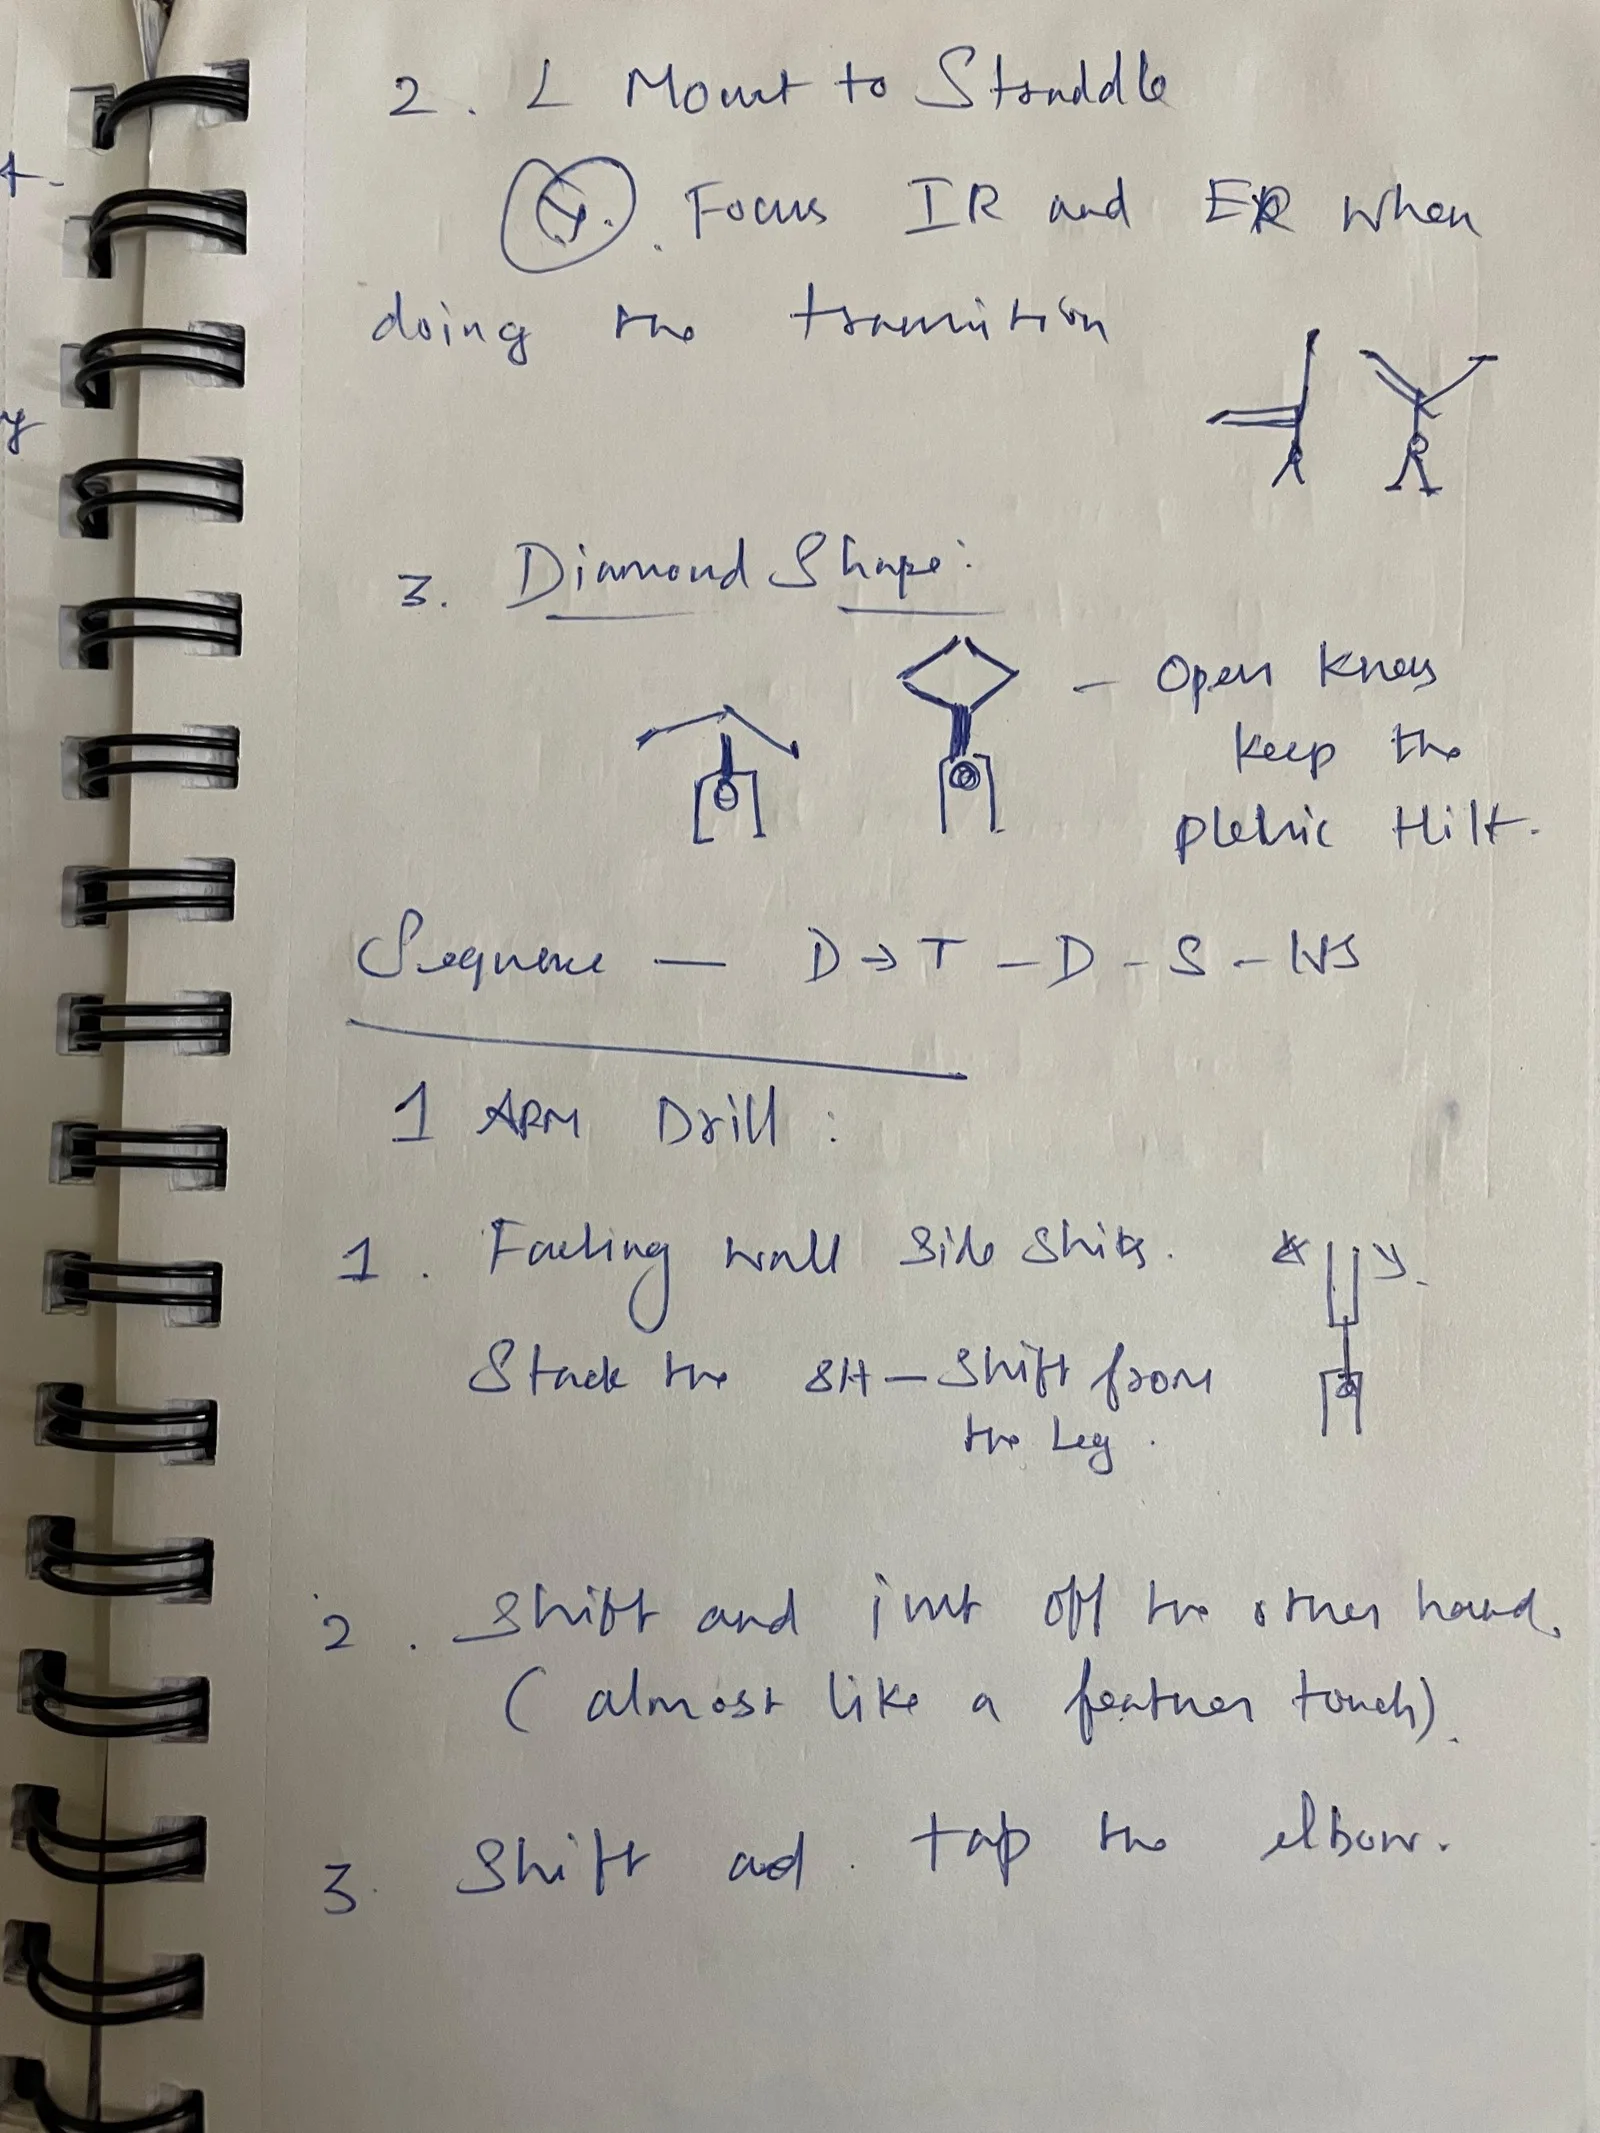 2. L Mount to Straddle
Focus IR and ER when
doing the transition
t.
y
3. Diamond Shape:
- Open knees
keep the
plelvic tilt.
Sequence — D → T - D - S - WS
1 ARM Drill :
1. Facing wall side shifts.
Stack the SH - Shift from
the Leg.
2. Shift and just off the other hand.
(almost like a feather touch).
3. Shift ad. tap the elbow.